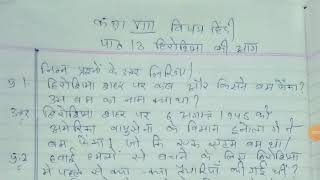 कक्षा VIII विषय हिंदी
पाठ 13 हिरोशिमा की आग
निम्न प्रश्नों के उत्तर लिखिए।
प्र.1 हिरोशिमा शहर पर कब और किसने बम फेंका?
उस बम का नाम क्या था?
उत्तर हिरोशिमा शहर पर 6 अगस्त 1945 को
अमेरिका वायुसेना के विमान इनोला गे ने
बम फेंका। जो कि एक बम था।
प्र.2 हवाई हमलों से बचाने के लिए हिरोशिमा
में पहले से क्या-क्या तैयारियां की गई थी?